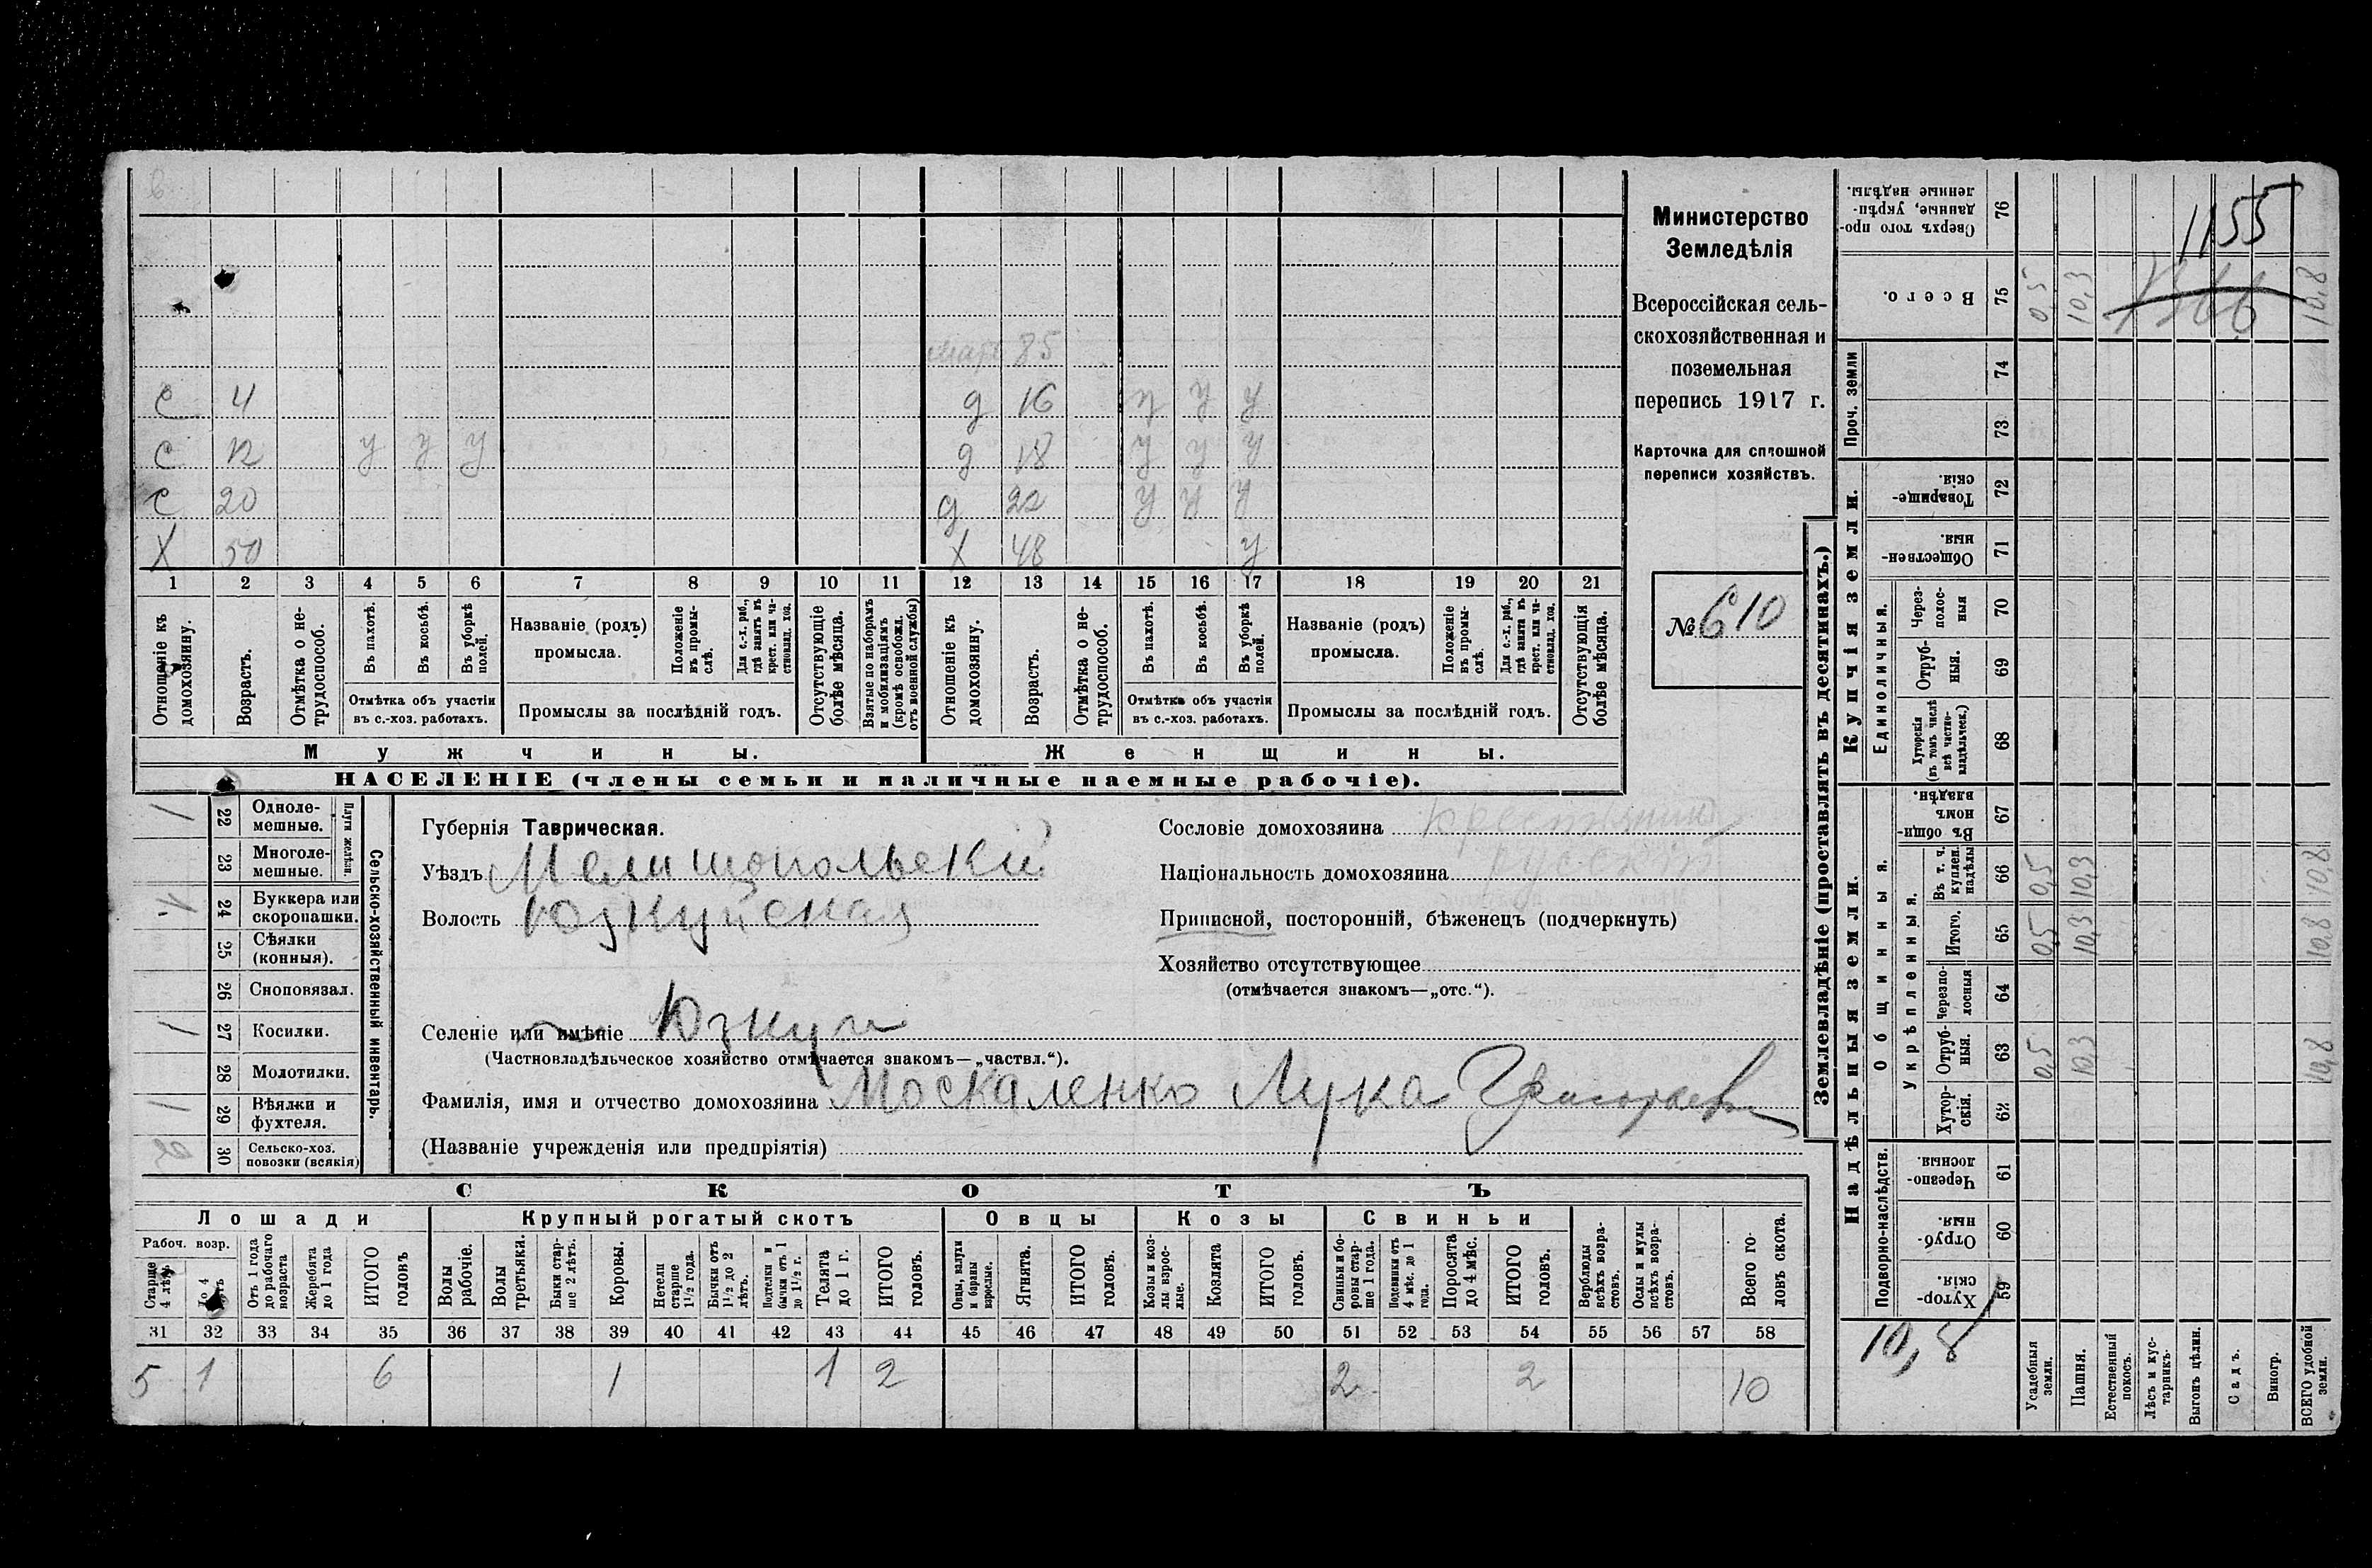 мать 85
с 4 д 16 у у у
с 12 у у у д 18 у у у
с 20 д 22 у у у
X 50 X 48 у
1 2 3 4 5 6 7 8 9 10 11 12 13 14 15 16 17 18 19 20 21
Отношеніе къ домохозяину.
Возрастъ.
Отмѣтка о не-трудоспособ.
Въ пахотѣ.
Въ косьбѣ.
Въ уборкѣ полей.
Отмѣтка объ участіи
въ с.-хоз. работахъ.
Названіе (родъ)
промысла.
Положеніе въ промы-слѣ.
Для с.-х. раб., гдѣ занятъ въ крест. или ча-стновлад. хоз.
Промыслы за послѣдній годъ.
Отсутствующіе болѣе мѣсяца.
Взятые по наборамъ и мобилизаціямъ (кромѣ освобожд. отъ военной службы)
Отношеніе къ домохозяину.
Возрастъ.
Отмѣтка о не-трудоспособ.
Въ пахотѣ.
Въ косьбѣ.
Въ уборкѣ полей.
Отмѣтка объ участіи
въ с.-хоз. работахъ.
Названіе (родъ)
промысла.
Положеніе въ промы-слѣ.
Для с.-х. раб., гдѣ занята въ крест. или ча-стновлад. хоз.
Промыслы за послѣдній годъ.
Отсутствующія болѣе мѣсяца.
Мужчины. Женщины.
НАСЕЛЕНІЕ (члены семьи и наличные наемные рабочіе).
Министерство
Земледѣлія
Всероссійская сель-
скохозяйственная и
поземельная
перепись 1917 г.
Карточка для сплошной
переписи хозяйствъ.
№ 610
1 22 Одноле-мешные.
23 Многоле-мешные.
Плуги желѣзн.
1 24 Буккера или скоропашки.
25 Сѣялки (конныя).
26 Сноповязал.
1 27 Косилки.
28 Молотилки.
1 29 Вѣялки и фухтеля.
2 30 Сельско-хоз. повозки (всякія)
Сельско-хозяйственный инвентарь.
Губернія Таврическая.
Уѣздъ Мелитопольскій
Волость Юзкуйская
Селеніе или имѣніе Юзкуи
(Частновладѣльческое хозяйство отмѣчается знакомъ—„частвл.“).
Фамилія, имя и отчество домохозяина Москаленко Лука Григорьев
(Названіе учрежденія или предпріятія)
Сословіе домохозяина крестьянин
Національность домохозяина русскій
Приписной, посторонній, бѣженецъ (подчеркнуть)
Хозяйство отсутствующее
(отмѣчается знакомъ—„отс.“).
СКОТЪ
Лошади Крупный рогатый скотъ Овцы Козы Свиньи
Рабоч. возр.
Старше 4 лѣтъ
До 4 лѣтъ
Отъ 1 года до рабочаго возраста
Жеребята до 1 года
ИТОГО головъ
Волы рабочіе.
Волы третьяки.
Быки стар-ше 2 лѣтъ.
Коровы.
Нетели старше 1½ года.
Бычки отъ 1½ до 2 лѣтъ.
Подтелки и бычки отъ 1 до 1½ г.
Телята до 1 г.
ИТОГО головъ.
Овцы, валухи и бараны взрослые.
Ягнята.
ИТОГО головъ.
Козы и коз-лы взрос-лые.
Козлята
ИТОГО головъ.
Свиньи и бо-ровы стар-ше 1 года.
Подсвинки отъ 4 мѣс. до 1 года.
Поросята до 4 мѣс.
ИТОГО головъ.
Верблюды всѣхъ возра-стовъ.
Ослы и мулы всѣхъ возра-стовъ.
Всего го-ловъ скота.
31 32 33 34 35 36 37 38 39 40 41 42 43 44 45 46 47 48 49 50 51 52 53 54 55 56 57 58
5 1 6 1 1 2 2 2 10
Землевладѣніе (проставлять въ десятинахъ.)
Надѣльныя земли. Купчія земли. Проч. земли
Подворно-наслѣдств. Общинныя. Укрѣпленныя. Единоличныя.
Сверхъ того про-данные, укрѣп-ленные надѣлы. 76
1155
Всего. 75 0,5 10,3 10,8
74
73
Товарище-скія. 72
Обществен-ныя. 71
Через-полос-ныя 70
Отруб-ныя. 69
Хуторскія (въ томъ числѣ всѣ частно-владѣльческ.) 68
Въ общи-номъ владѣн. 67
Въ т. ч. куплен. надѣлы 66 0,5 10,3 10,8
Итого. 65 0,5 10,3 10,8
Черезпо-лосныя 64
Отруб-ныя. 63 0,5 10,3 10,8
Хутор-скія. 62
Черезпо-лосныя. 61
Отруб-ныя. 60
Хутор-скія. 59
10,8
Усадебныя земли.
Пашня.
Естественный покосъ.
Лѣсъ и кус-тарникъ.
Выгонъ цѣлин.
Садъ.
Виногр.
ВСЕГО удобной земли.